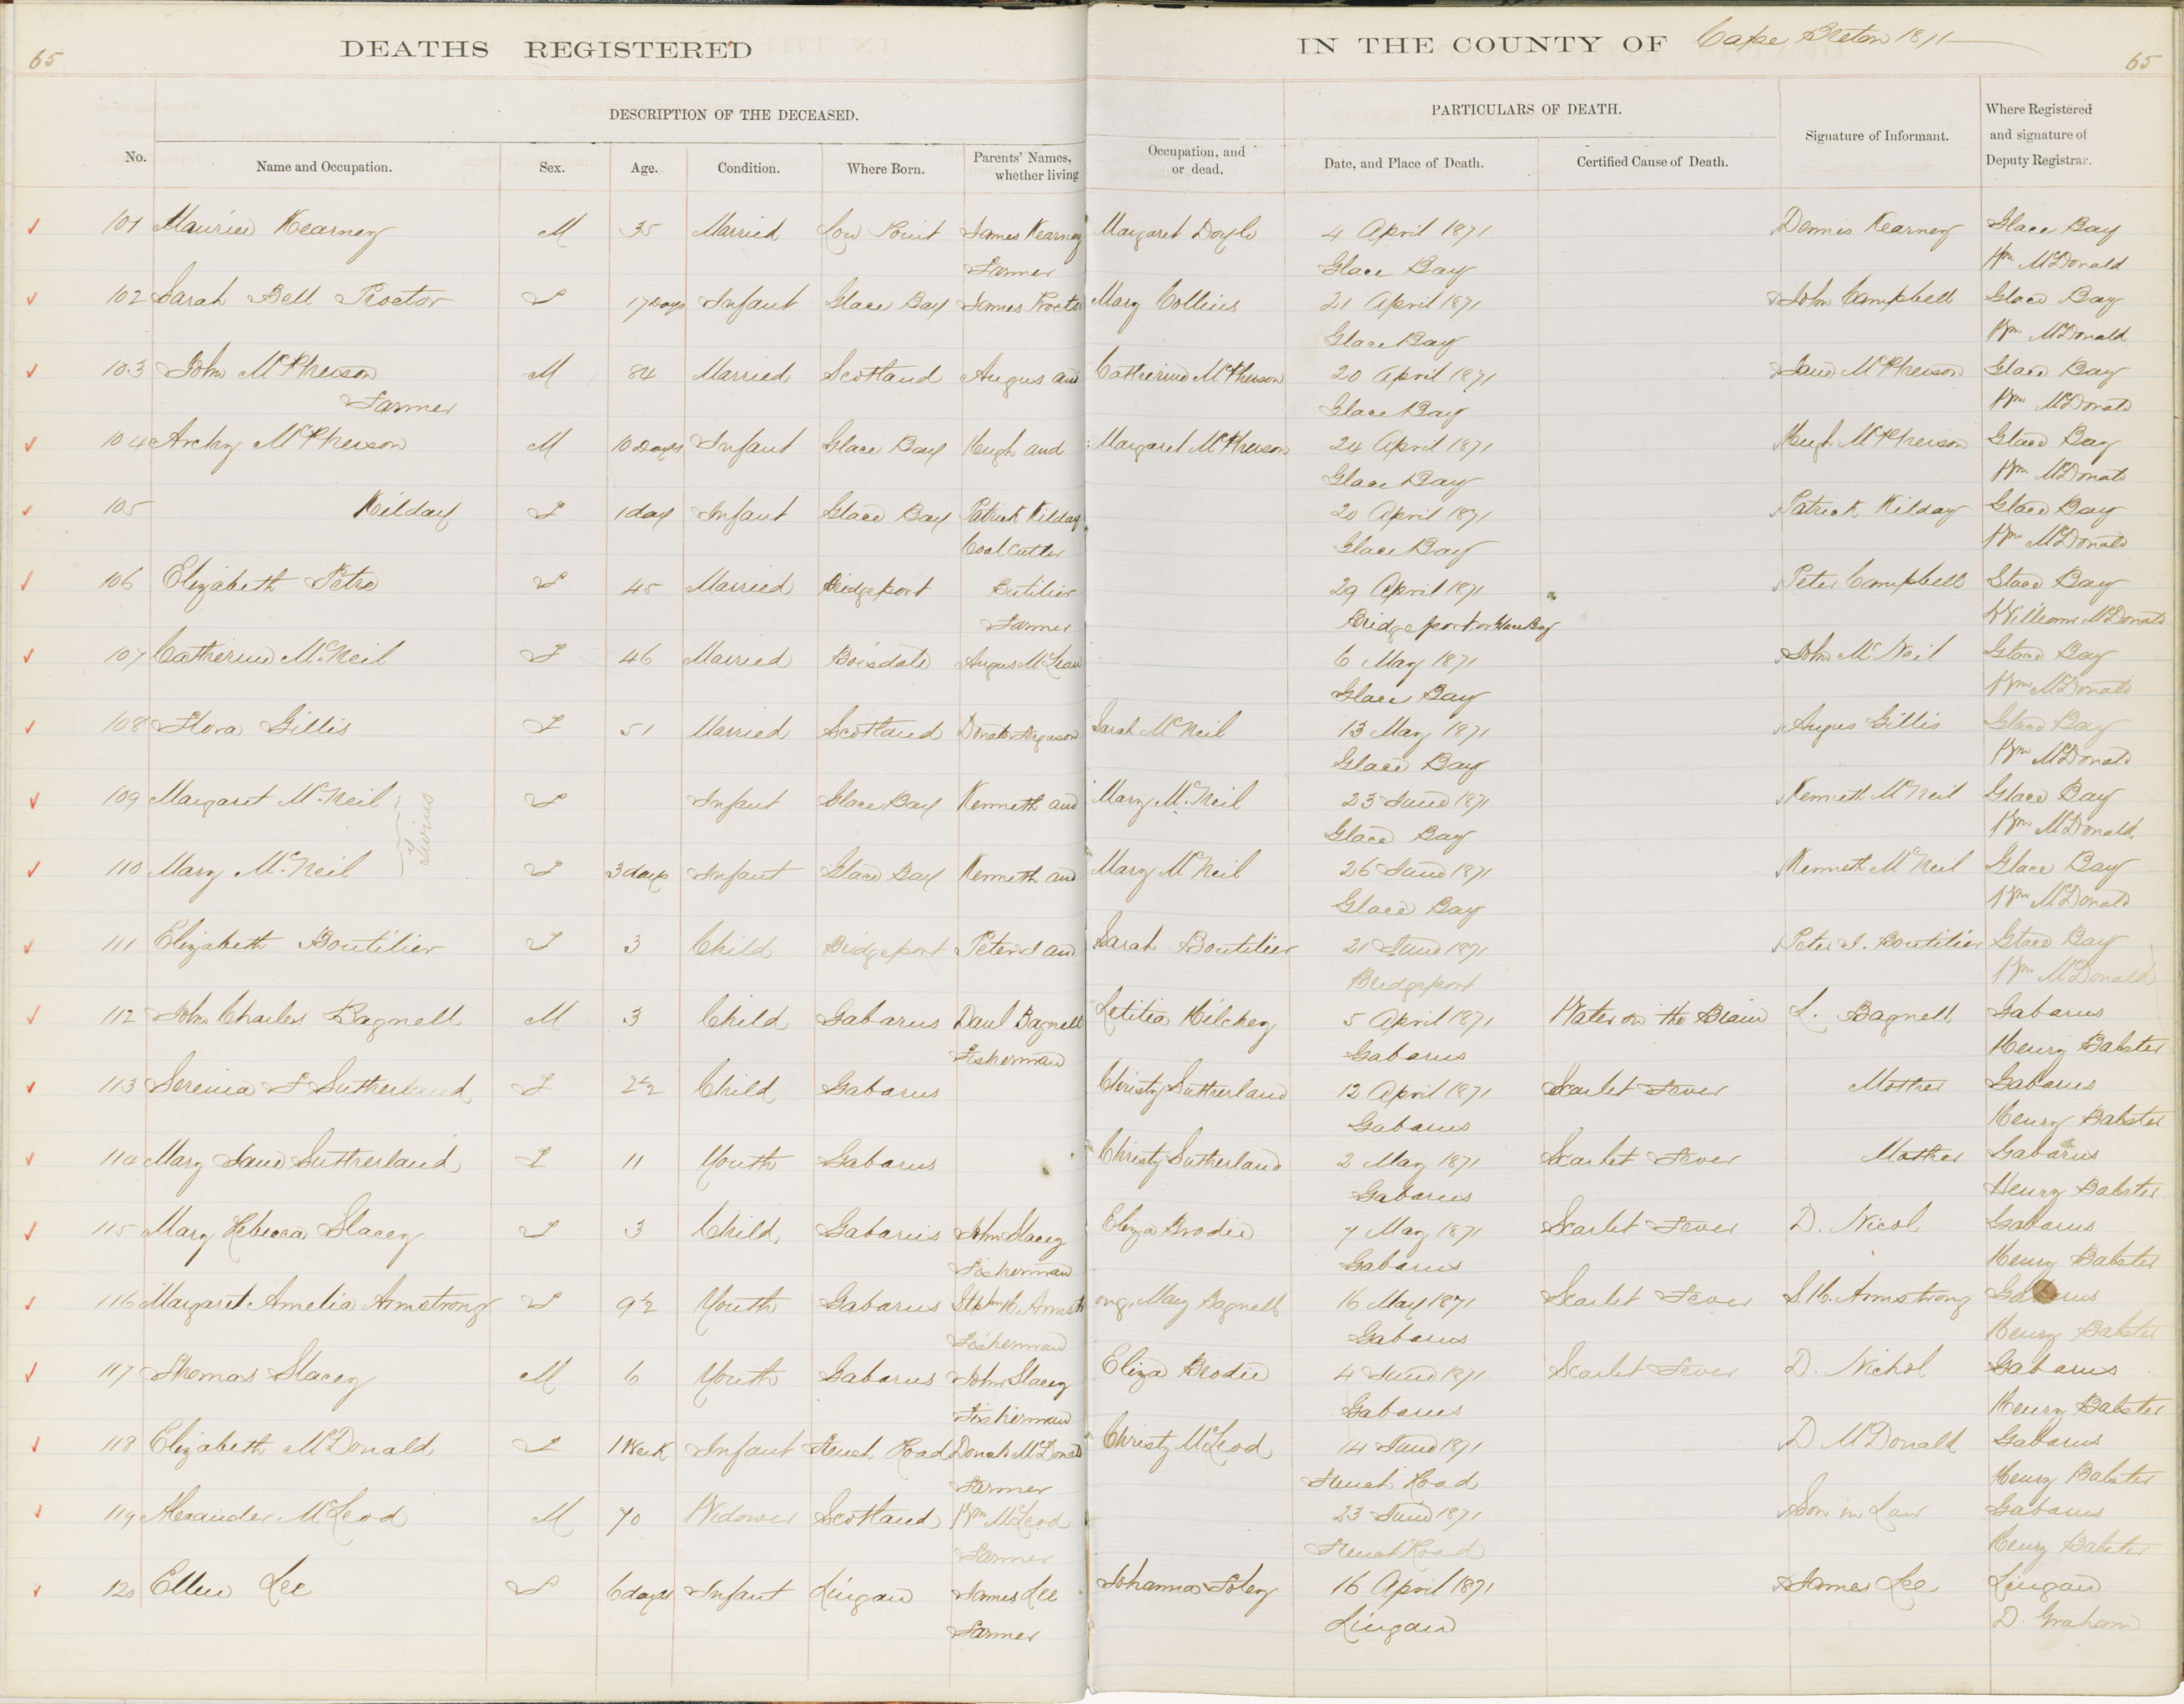 65 DEATHS REGISTERED IN THE COUNTY OF Cape Breton 1871 65
DESCRIPTION OF THE DECEASED. PARTICULARS OF DEATH. Signature of Informant. Where Registered and signature of Deputy Registrar.
No. Name and Occupation. Sex. Age. Condition. Where Born. Parents' Names, whether living Occupation, and or dead. Date, and Place of Death. Certified Cause of Death.
101 Maurice Kearney M 35 Married Low Point James Kearney Margaret Doyle 4 April 1871 Dennis Kearney Glace Bay
Farmer Glace Bay Wm McDonald
102 Sarah Bell Proctor F 17 Days Infant Glace Bay James Proctor Mary Collins 21 April 1871 John Campbell Glace Bay
Glace Bay Wm McDonald
103 John McPherson M 84 Married Scotland Angus and Catherine McPherson 20 April 1871 Jane McPherson Glace Bay
Farmer Glace Bay Wm McDonald
104 Archy McPherson M 10 Days Infant Glace Bay Hugh and Margaret McPherson 24 April 1871 Hugh McPherson Glace Bay
Glace Bay Wm McDonald
105 Kilday F 1 day Infant Glace Bay Patrick Kilday 20 April 1871 Patrick Kilday Glace Bay
Coal Cutter Glace Bay Wm McDonald
106 Elizabeth Petre F 45 Married Bridgeport Butilier 29 April 1871 Peter Campbell Glace Bay
Farmer Bridgeport or Glace Bay William McDonald
107 Catherine McNeil F 46 Married Boisdale Angus McLean 6 May 1871 John McNeil Glace Bay
Glace Bay Wm McDonald
108 Flora Gillis F 51 Married Scotland Donald Ferguson Sarah McNeil 13 May 1871 Angus Gillis Glace Bay
Glace Bay Wm McDonald
109 Margaret McNeil F Infant Glace Bay Kenneth and Mary McNeil 23 June 1871 Kenneth McNeil Glace Bay
Twins Glace Bay Wm McDonald
110 Mary McNeil F 3 days Infant Glace Bay Kenneth and Mary McNeil 26 June 1871 Kenneth McNeil Glace Bay
Glace Bay Wm McDonald
111 Elizabeth Boutilier F 3 Child Bridgeport Peter J and Sarah Boutilier 21 June 1871 Peter J. Boutilier Glace Bay
Bridgeport Wm McDonald
112 John Charles Bagnell M 3 Child Gabarus Paul Bagnell Letitia Hilchey 5 April 1871 Water on the Brain L. Bagnell Gabarus
Fisherman Gabarus Henry Babster
113 Serena F Sutherland F 2 1/2 Child Gabarus Christy Sutherland 12 April 1871 Scarlet Fever Mother Gabarus
Gabarus Henry Babster
114 Mary Jane Sutherland F 11 Youth Gabarus Christy Sutherland 2 May 1871 Scarlet Fever Mother Gabarus
Gabarus Henry Babster
115 Mary Rebecca Stacey F 3 Child Gabarus John Stacey Eliza Brodie 7 May 1871 Scarlet Fever D. Nicol Gabarus
Fisherman Gabarus Henry Babster
116 Margaret Amelia Armstrong F 9 1/2 Youth Gabarus Stephen H. Armstrong, Mary Bagnell 16 May 1871 Scarlet Fever S. H. Armstrong Gabarus
Fisherman Gabarus Henry Babster
117 Thomas Stacey M 6 Youth Gabarus John Stacey Eliza Brodie 4 June 1871 Scarlet Fever D. Nichol Gabarus
Fisherman Gabarus Henry Babster
118 Elizabeth McDonald F 1 Week Infant French Road Donald McDonald Christy McLeod 14 June 1871 D McDonald Gabarus
Farmer French Road Henry Babster
119 Alexander McLeod M 70 Widower Scotland Wm McLeod 23 June 1871 Son in Law Gabarus
Farmer French Road Henry Babster
120 Ellen Lee F 6 days Infant Lingan James Lee Johanna Foley 16 April 1871 James Lee Lingan
Farmer Lingan D. Graham